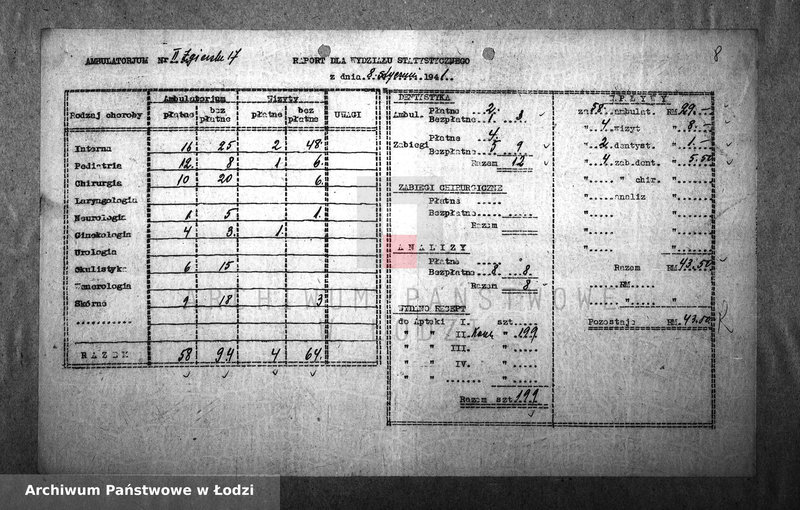 8
AMBULATORJUM Nr II Zgierska 17
RAPORT DLA WYDZIAŁU STATYSTYCZNEGO
z dnia 8. stycznia 1941.
Rodzaj choroby Ambulatorjum Wizyty UWAGI
płatne bez płatne płatne bez płatne
Interna 16 25 2 48
Pediatria 12 8 1 6
Chirurgia 10 20 6
Laryngologia
Neurologia 1 5 1
Ginekologia 4 3 1
Urologia
Okulistyka 6 15
Wenerologia
Skórne 9 18 3
RAZEM 58 94 4 64
DENTYSTYKA
Ambul. Płatne 2
Bezpłatne 1 3
Zabiegi Płatne 4
Bezpłatne 5 9
Razem 12
ZABIEGI CHIRURGICZNE
Płatne
Bezpłatne
Razem
ANALIZY
Płatne
Bezpłatne 8 8
Razem 8
WYDANO RECEPT
do Apteki I. szt.
" " II. " 199
" " III. "
" " IV. "
" " "
Razem szt. 199
WPŁYWY
za 58 ambulat. RM. 29.-
" 4 wizyt " 8.-
" 2 dentyst. " 1.-
" 4 zab.dent. " 5.50
" " chir. "
" analiz "
" "
" "
Razem RM. 43.50
RM.
" "
Pozostaje RM. 43.50
ARCHIWUM PAŃSTWOWE
W ŁODZI
Archiwum Państwowe w Łodzi